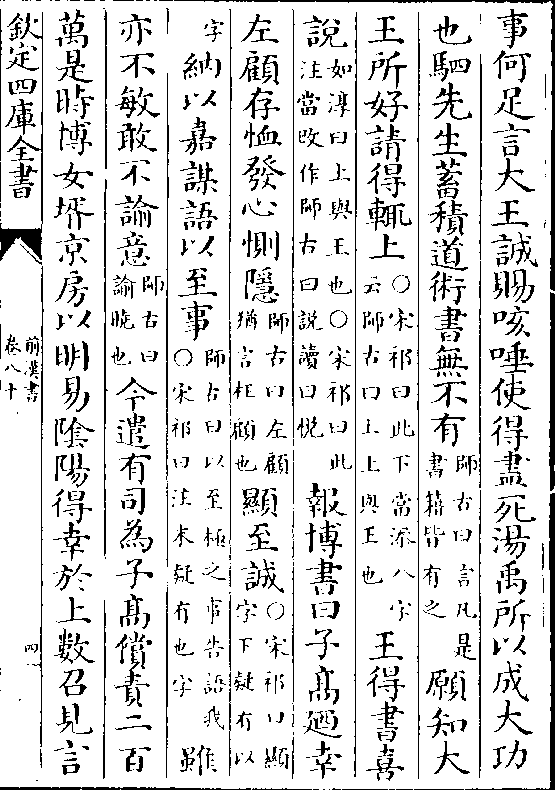 事何足言大王誠賜咳唾使得盡死湯禹所以成大功
也駟先生蓄積道術書無不有師古曰言凡是書籍皆有之願知大
王所好請得輒上○宋祁曰此下當添八字云師古曰上上與王也王得書喜
說如淳曰上與王也○宋祁曰此注當改作師古曰說讀曰悅報博書曰子髙廼幸
左顧存恤發心惻隱師古曰左顧猶言枉顧也顯至誠○宋祁曰顯字下疑有以
字納以嘉謀語以至事師古曰以至極之事告語我○宋祁曰注末疑有也字雖
亦不敏敢不諭意師古曰諭曉也今遣有司為子髙償責二百
萬是時博女壻京房以明易隂陽得幸於上數召見言
欽定四庫全書
前漢書
卷八十
四